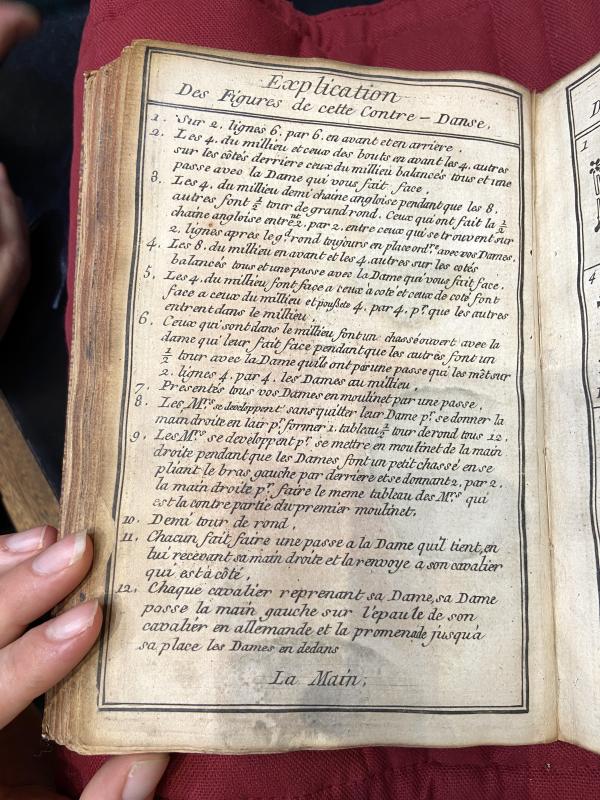 Explication
Des Figures de cette Contre - Danse.
1. Sur 2. lignes 6. par 6. en avant et en arriere.
2. Les 4. du millieu et ceux des bouts en avant les 4. autres
sur les côtés derriere ceux du millieu balancés tous et une
passe avec la Dame qui vous fait face.
3. Les 4. du millieu demi chaine angloise pendant que les 8.
autres font ½ tour de grand rond. Ceux qui ont fait la ½
chaine angloise entrent 2. par 2. entre ceux qui se trouvent sur
2. lignes après le gd. rond toujours en place ordre. avec vos Dames.
4. Les 8. du millieu en avant et les 4. autres sur les cotés
balancés tous et une passe avec la Dame qui vous fait face.
5. Les 4. du millieu font face a ceux à coté et ceux de coté font
face a ceux du millieu et poussete 4. par 4. pr. que les autres
entrent dans le millieu
6. Ceux qui sont dans le millieu font un chassé ouvert avec la
dame qui leur fait face pendant que les autres font un
½ tour avec la Dame qu'ils ont par une passe qui les met sur
2. lignes 4. par 4. les Dames au millieu.
7. Presentés tous vos Dames en moulinet par une passe.
8. Les Mrs. se developpent sans quitter leur Dame pr. se donner la
main droite en l'air pr. former 1. tableau ½ tour de rond tous 12.
9. Les Mrs. se developpent pr. se mettre en moulinet de la main
droite pendant que les Dames font un petit chassé en se
pliant le bras gauche par derriere et se donnant 2. par 2.
la main droite pr. faire le meme tableau des Mrs. qui
est la contre partie du premier moulinet.
10. Demi tour de rond.
11. Chacun fait faire une passe a la Dame qu'il tient, en
lui recevant sa main droite et la renvoye a son cavalier
qui est à côté.
12. Chaque cavalier reprenant sa Dame, sa Dame
posse la main gauche sur l'epaule de son
cavalier en allemande et la promenade jusqu'a
sa place les Dames en dedans
La Main.
1
4